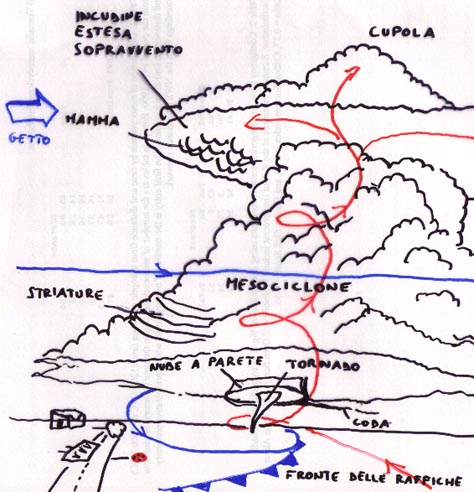 INCUDINE
ESTESA
SOPRAVVENTO
CUPOLA
MAMMA
GETTO
MESOCICLONE
STRIATURE
NUBE A PARETE
TORNADO
CODA
FRONTE DELLE RAFFICHE